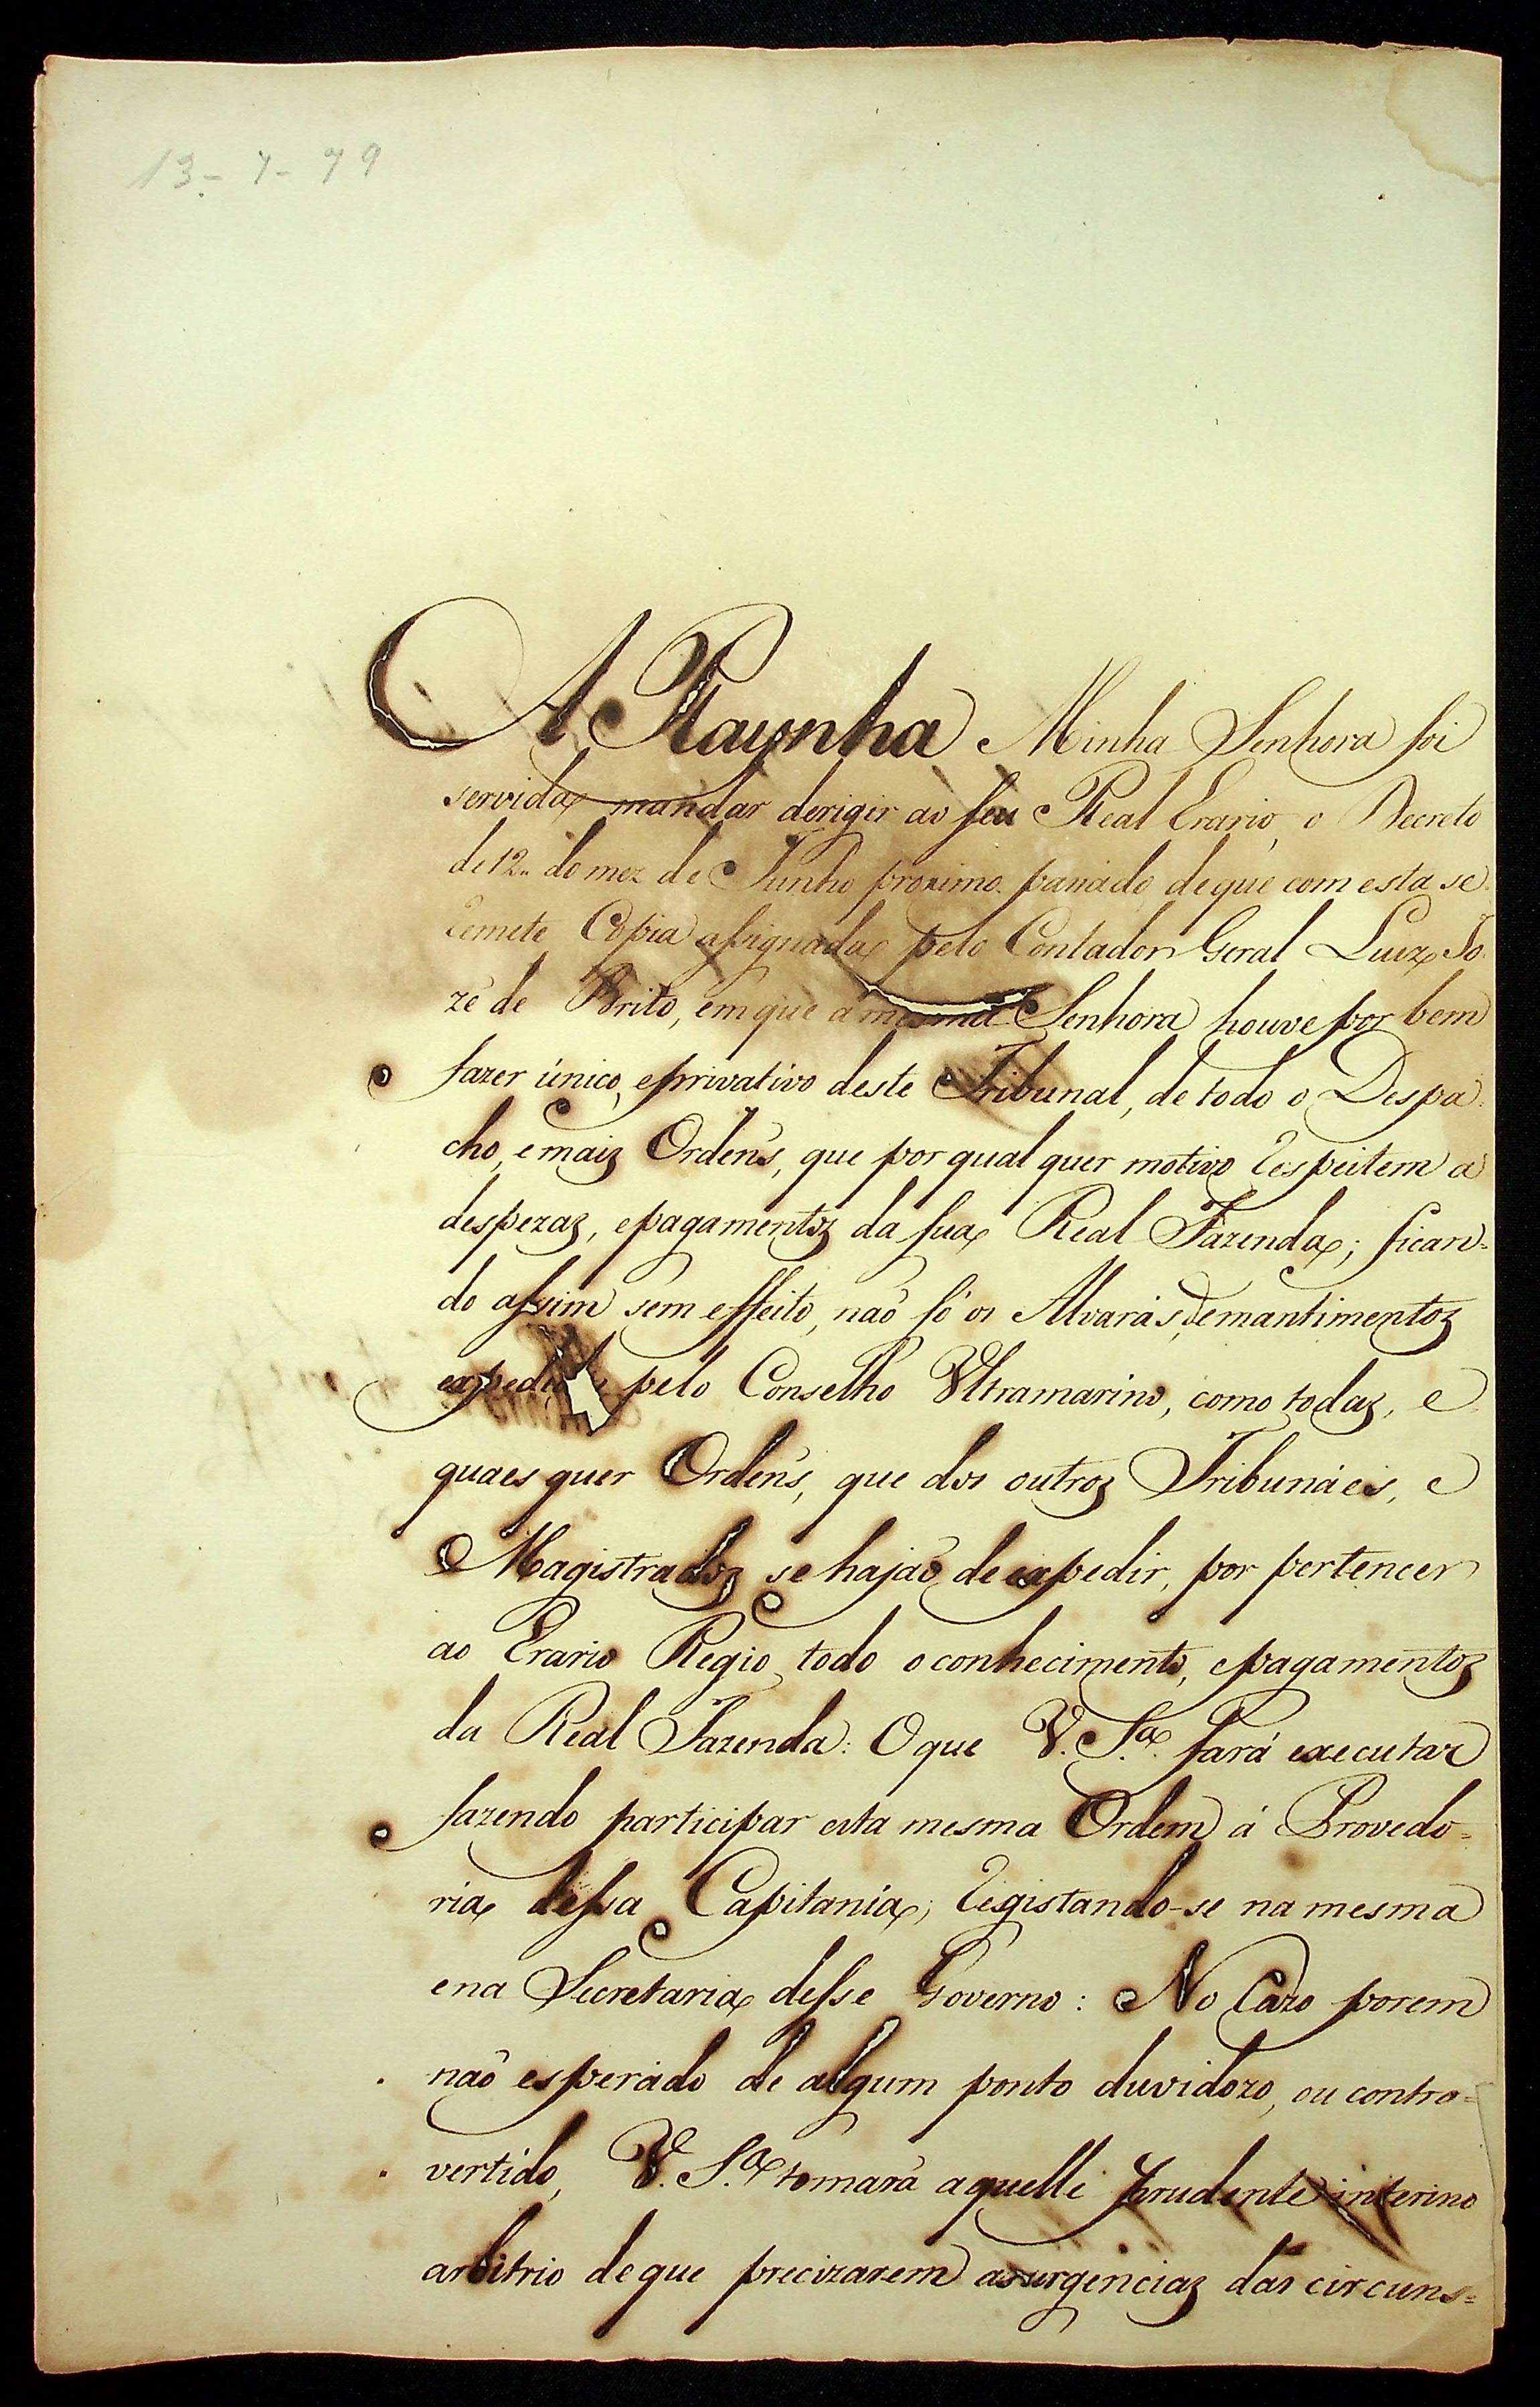 13-7-79
A Raynha Minha Senhora foi
servida mandar derigir ao seu Real Erario, o Decreto
de 12 do mez de Junho proximo passado, de que com esta se
remete Copia assignada pelo Contador Geral Luiz Jo-
zé de Brito, em que a mesma Senhora houve por bem
fazer único, e privativo deste Tribunal, de todo o Despa-
cho, e maiz Orden's, que por qual quer motivo respeitem a
despezaz, e pagamentoz da sua Real Fazenda; fican-
do assim sem effeito, naõ só os Alvarás, de mantimentoz
pelo Conselho Ultramarino, como todaz, e
quaes quer Orden's, que dos outroz Tribunáes, e
Magistradoz se hajaõ de expedir, por pertencer
ao Erario Regio todo o conhecimento, e pagamentoz
da Real Fazenda: O que V. S.ª fará executar
fazendo participar esta mesma Ordem á Provedo-
ria dessa Capitanía; registando-se na mesma
e na Secretaria desse Governo: No Cazo porem
naõ esperado de algum ponto duvidozo, ou contro-
vertido, V. S.ª tomará aquelle prudente interino
arbitrio de que precizarem as urgenciaz das circuns-